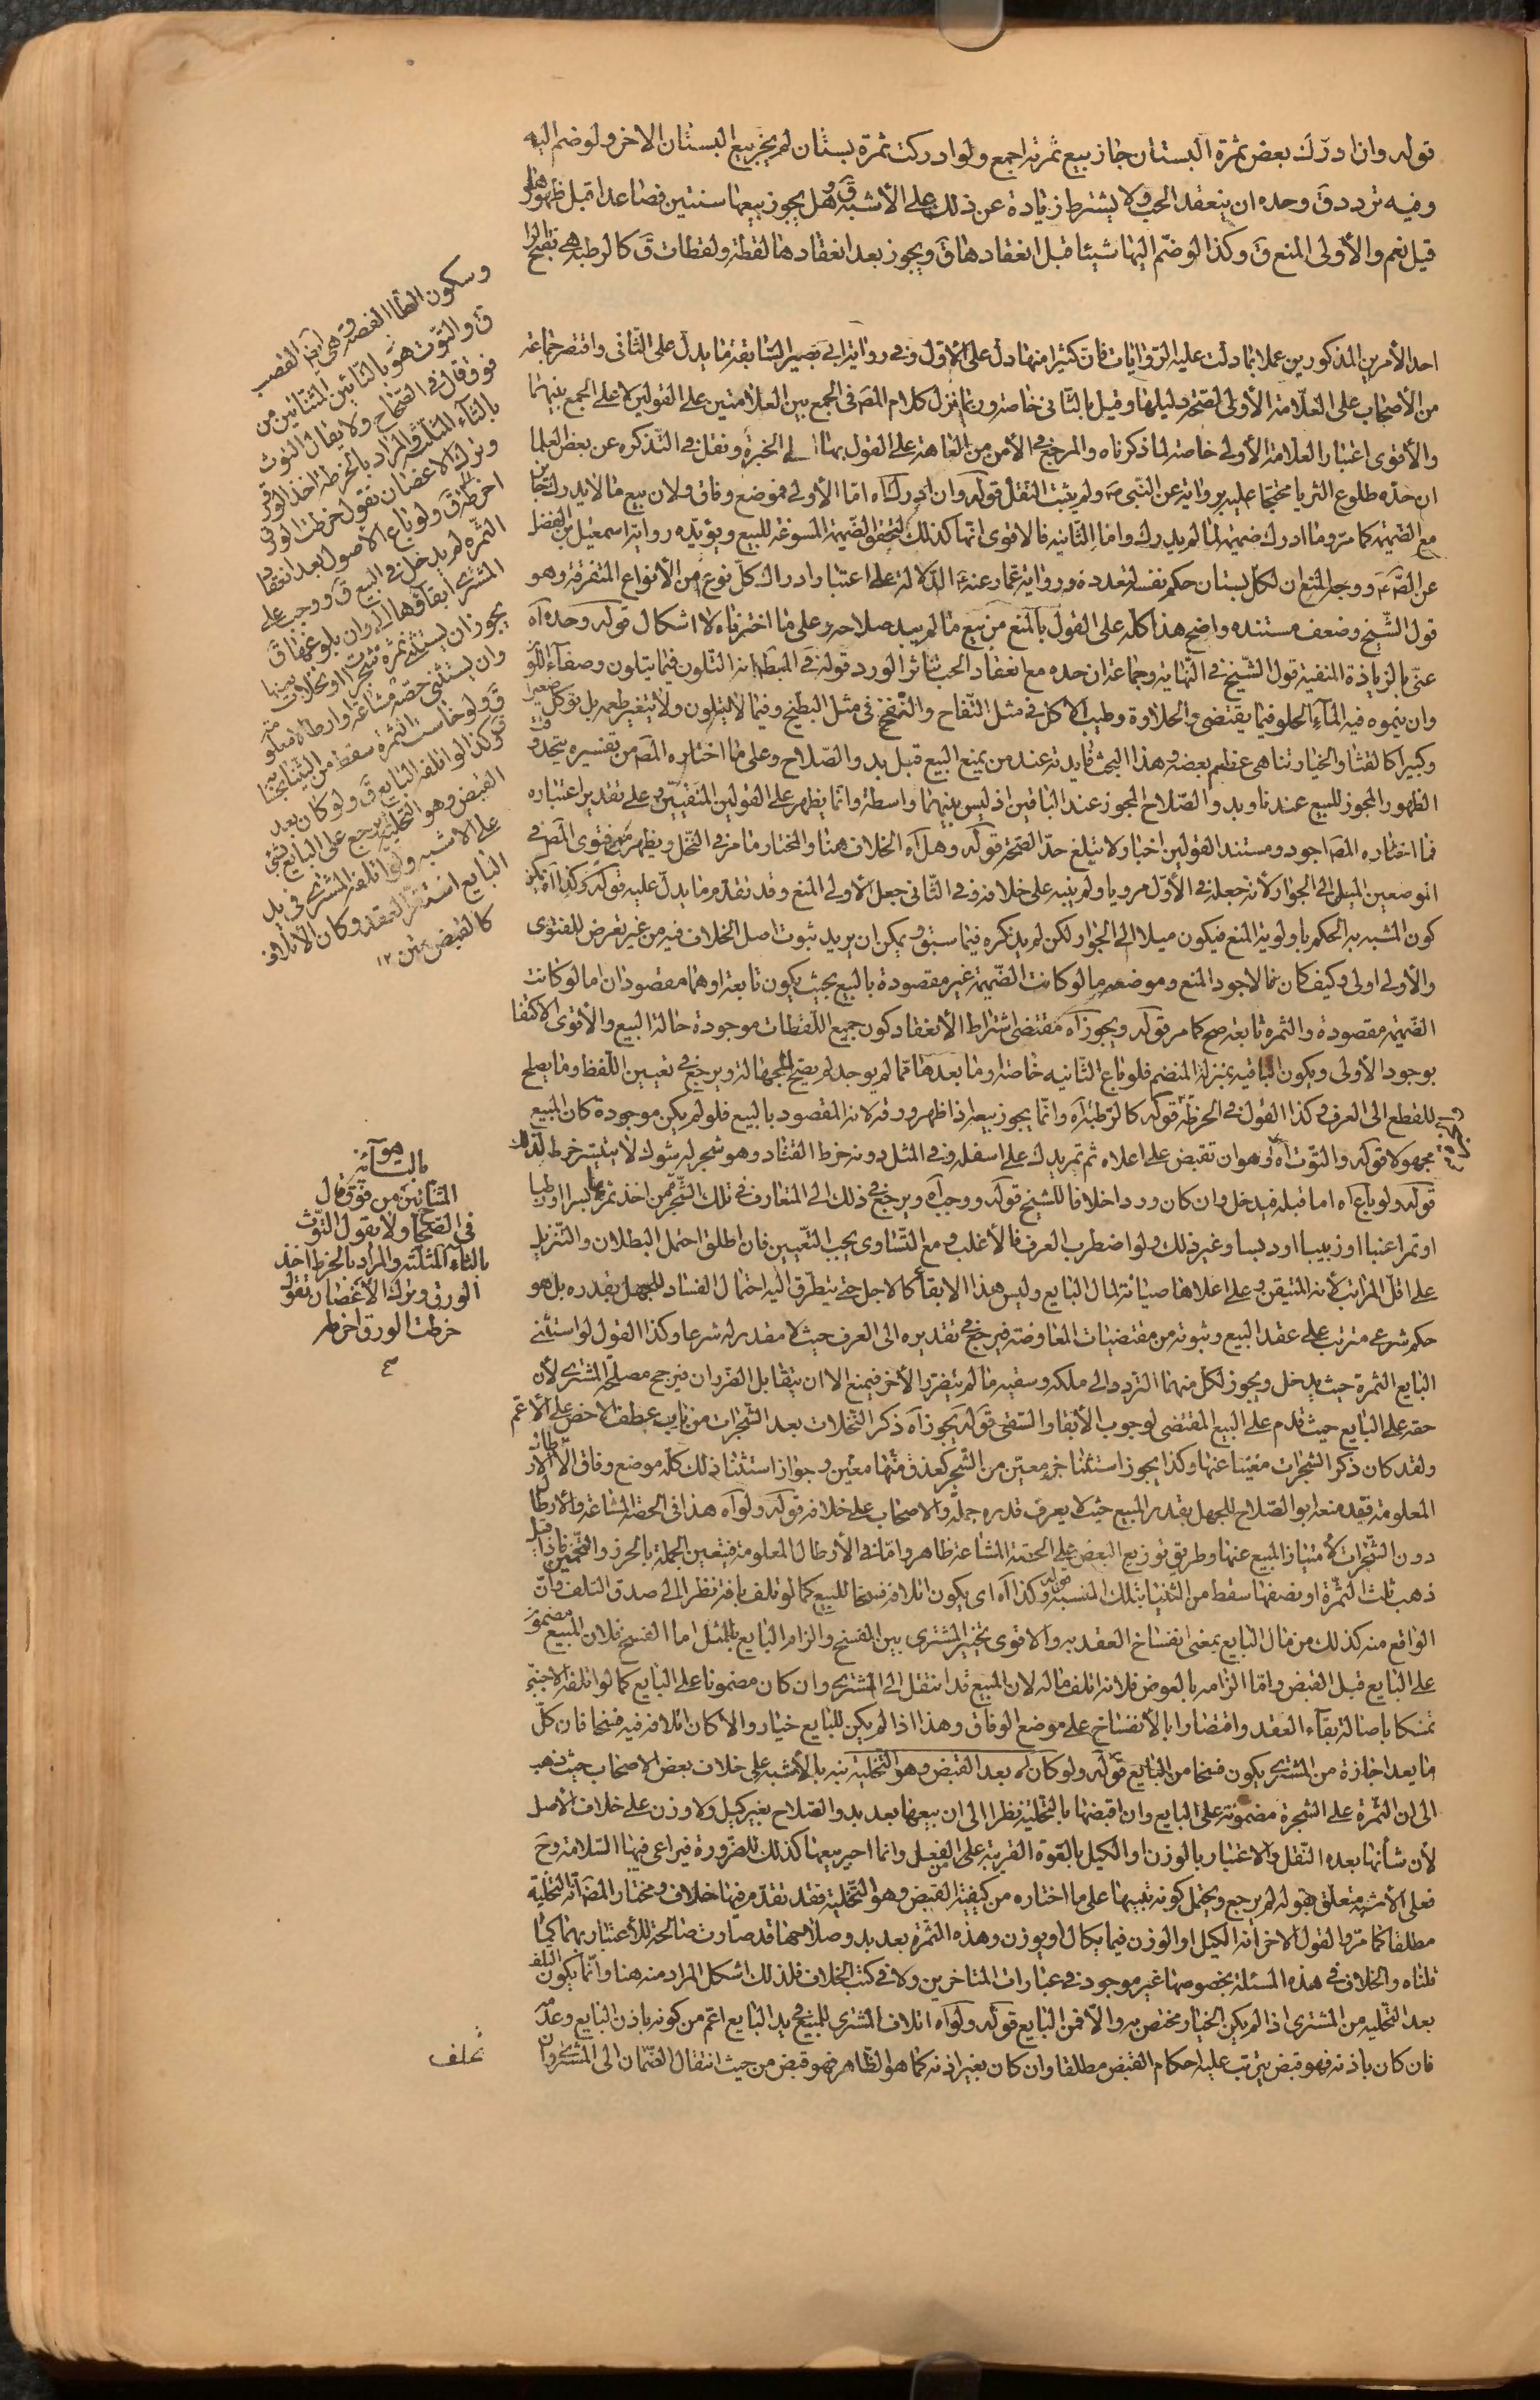 قوله وان ادرك بعض ثمرة البستان جاز بيع ثمرته اجمع ولو ادركت ثمرة بستان لم يجز بيع البستان الاخر ولو ضم اليه
وفيه تردد ق وحده ان ينعقد الحب ولا يشترط زيادة عن ذلك على الأشبه ق وهل يجوز بيعها سنتين فصاعدا قبل ظهورها
قيل نعم والأولى المنع ق وكذا لو ضم اليها شيئا قبل انعقادها ق ويجوز بعد انعقادها لقطة ولقطات ق كالرطبة هي بفتح الرا
احد الأمرين المذكورين عملا بما دلت عليه الروايات فان كثيرا منها دل على الاول وفي رواية ابي بصير السابقة ما يدل على الثاني واقتصر جماعة
من الأصحاب على العلامة الأولى لصحة دليلها وقيل بالثاني خاصة وربما نزل كلام المص في الجمع بين العلامتين على القولين لا على الجمع بينهما
والأقوى اعتبار العلامة الأولى خاصة لما ذكرناه والمرجع في الأمن من العاهة على القول بها الى اهل الخبرة ونقل في التذكره عن بعض العلما
ان حده طلوع الثريا محتجا عليه برواية عن النبي ص ولم يثبت النقل قوله وان ادرك اه اما الأولى فموضع وفاق ولان بيع ما لا يدرك جايز
مع الضميمة كما مر وما ادرك ضميمة لما لم يدرك واما الثانيه فالاقوى انها كذلك لتحقق الضميمة المسوغة للبيع ويؤيده رواية اسمعيل بن الفضل
عن الص ع ووجه المنع ان لكل بستان حكم نفسه لتعدده ورواية عمار عنه ع الدالة على اعتبار ادراك كل نوع من الأنواع المتفرقة وهو
قول الشيخ وضعف مستنده واضح هذا كله على القول بالمنع من بيع ما لم يبد صلاحه وعلى ما اخترناه لا اشكال قوله وحده اه
عنى بالزيادة المنفية قول الشيخ في النهاية وجماعة ان حده مع انعقاد الحب تناثر الورد قوله في المبسوط انه التلون فيما يتلون وصفاء اللون
وان يتموه فيه الماء الحلو فيما يقتضي الحلاوة وطيب الاكل في مثل التفاح والنضج في مثل البطيخ وفيما لا يتلون ولا يتغير طعمه بل يؤكل صغيرا
وكبيرا كالقثا والخيار تناهى عظم بعضه وهذا البحث فايدته عند من يمنع البيع قبل بدو الصلاح وعلى ما اختاره المص من تفسيره يتحد وقت
الظهور المجوز للبيع عندنا وبدو الصلاح المجوز عند الباقين اذ ليس بينهما واسطة وانما يظهر على القولين المنفيين وعلى تقدير اعتباره
فما اختاره المص اجود ومستند القولين اخبار لا تبلغ حد الصحة قوله وهل اه الخلاف هنا والمختار ما مر في النخل ويظهر من فتوى المص في
الموضعين الميل الى الجواز لانه جعله في الأول مرويا ولم ينبه على خلافه وفي الثاني جعل الأولى المنع وقد تقدم ما يدل عليه قوله وكذا اه يمكن
كون المشبه به الحكم باولوية المنع فيكون ميلا الى الجواز لكن لم يذكره فيما سبق ويمكن ان يريد ثبوت اصل الخلاف فيه من غير تعرض للفتوى
والأولى اولى وكيف كان فالاجود المنع وموضعه ما لو كانت الضميمة غير مقصودة بالبيع بحيث يكون تابعة او هما مقصودان اما لو كانت
الضميمة مقصودة والثمره تابعة صح كما مر قوله ويجوز اه مقتضى اشتراط الأنعقاد كون جميع اللقطات موجودة حالة البيع والأقوى الاكتفا
بوجود الأولى ويكون الباقية بمنزلة المنضم فلو باع الثانيه خاصة وما بعدها مما لم يوجد لم يصح للجهالة ويرجع في تعيين اللقط وما يصلح
للقطع الى العرف وكذا القول في الخرطة قوله كالرطبة اه وانما يجوز بيعه اذا ظهر ورقه لانه المقصود بالبيع فلو لم يكن موجودة كان المبيع
مجهولا قوله والتوت اه وهو ان تقبض على اعلاه ثم تمر يدك على اسفله وفي المثل دونه خرط القتاد وهو شجر له شوك لا يتيسر خرطه لذلك
قوله ولو باع اه اما قبله فيدخل وان كان وردا خلافا للشيخ قوله ووجب اه ويرجع في ذلك الى المتعارف في تلك الشجرة من اخذ ثمرتها بسرا او رطبا
او تمرا عنبا او زبيبا او دبسا وغير ذلك ولو اضطرب العرف فالأغلب ومع التساوي يجب التعيين فان اطلق احتمل البطلان والتنزيل
على اقل المراتب لانه المتيقن وعلى اعلاها صيانة لمال البايع وليس هذا الابقاء كالاجل حتى يتطرق اليه احتمال الفساد للجهل بقدره بل هو
حكم شرعي مترتب على عقد البيع وثبوته من مقتضيات المعاوضة فيرجع في تقديره الى العرف حيث لا مقدر له شرعا وكذا القول لو استثنى
البايع الثمرة حيث يدخل ويجوز لكل منهما التردد الى ملكه وسقيه ما لم يتضرر الأخر فيمنع الا ان يتقابل الضرران فيرجح مصلحة المشتري لأن
حقه على البايع حيث قدم على البيع المقتضي لوجوب الأبقاء والسقي قوله يجوز اه ذكر النخلات بعد الشجرات من باب عطف الاخص على الأعم
ولقد كان ذكر الشجرات مغنيا عنها وكذا يجوز استثنا جزء معين من الشجر كعذق منها معين وجواز استثنا ذلك كله موضع وفاق الا الارطال
المعلومة فقد منعه ابو الصلاح للجهل بقدر المبيع حيث لا يعرف قدره جملة والاصحاب على خلافه قوله ولو اه هذا في الحصة المشاعة والأرطال
دون الشجرات لامتياز المبيع عنها وطريق توزيع النقص على الحصة المشاعة ظاهر واما في الأرطال المعلومة فيتعين الجملة بالحرز والتخمين فاذا قيل
ذهب ثلث الثمرة او نصفها سقط من الثنيا بتلك النسبة قوله وكذا اه اي يكون اتلافه فسخا للبيع كما لو تلف بافة نظرا الى صدق التلف وان
الواقع منه كذلك من مال البايع بمعنى انفساخ العقد به والاقوى تخيير المشتري بين الفسخ والزام البايع بالمثل اما الفسخ فلان المبيع مضمون
على البايع قبل القبض واما الزامه بالعوض فلانه اتلف ماله لان المبيع قد انتقل الى المشتري وان كان مضمونا على البايع كما لو اتلفه الاجنبي
تمسكا باصالة بقاء العقد واقتصارا بالأنفساخ على موضع الوفاق وهذا اذا لم يكن للبايع خيار والا كان اتلافه فيه فسخا فان كل
ما يعد اجازة من المشتري يكون فسخا من البايع قوله ولو كان اه بعد القبض وهو التخلية نبه بالأشبه على خلاف بعض الاصحاب حيث ذهب
الى ان الثمرة على الشجرة مضمونة على البايع وان اقبضها بالتخلية نظرا الى ان بيعها بعد بدو الصلاح بغير كيل ولا وزن على خلاف الاصل
لأن شأنها بعده النقل والاعتبار بالوزن او الكيل بالقوة القريبة على الفعل وانما اجيز بيعها كذلك للضرورة فيراعى فيها السلامة وح
فعلى الأشبه متعلق بقوله لم يرجع ويحتمل كونه تنبيها على ما اختاره من كيفية القبض وهو التخلية فقد تقدم فيها خلاف ومختار المص انه التخلية
مطلقا كما مر والقول الاخر انه الكيل او الوزن فيما يكال او يوزن وهذه الثمرة بعد بدو صلاحها قد صارت صالحة للأعتبار بهما كما
قلناه والخلاف في هذه المسئلة بخصوصها غير موجود في عبارات المتاخرين ولا في كتب الخلاف فلذلك اشكل المراد منه هنا وانما يكون التلف
بعد التخلية من المشتري اذا لم يكن الخيار مختص به والا فمن البايع قوله ولو اه اتلاف المشتري للمبيع في يد البايع اعم من كونه باذن البايع وعدمه
فان كان باذنه فهو قبض يترتب عليه احكام القبض مطلقا وان كان بغير اذنه كما هو الظاهر فهو قبض من حيث انتقال الضمان الى المشتري وان
تخلف
وسكون الطا الفصه وهي ايضا القضب
ق والتوت هو بالتائين المثناتين من
فوق قال في الصحاح ولا يقال التوث
بالثاء المثلثة والمراد بالخرطة اخذ الورق
وترك الاغضان تقول خرطت الورق
اخرطه ق ولو باع الاصول بعد انعقاد
الثمره لم يدخل في البيع ق ووجب على
المشتري ابقاؤها الى اوان بلوغها ق
يجوز ان يستثنى ثمرة شجرات او نخلات بعينها
وان يستثنى حصة مشاعة او ارطالا معلومة
ق ولو خاست الثمرة سقط من الثنيا بحسابه
ق وكذا لو اتلفه البايع ق ولو كان بعد
القبض وهو التخلية لم يرجع على البايع بشي
على الاشبه ولو اتلفه المشتري في يد
البايع استقر العقد وكان الاتلاف
كالقبض متن ١٢
هو
بالتائين
المثناتين من فوق قال
في الصحاح ولا يقول التوث
بالثاء المثلثة والمراد بالخرط اخذ
الورق وترك الأغضان تقول
خرطت الورق اخرطه
صح